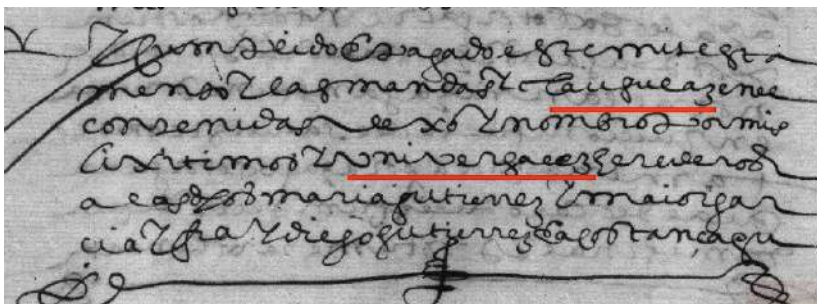 E cumplido E pagado este mi testa
mento E las mandas E clausulas en el
contenidas dexo E nombro por mis
lixitimos E universales herederos
a los dhos maria gutierrez E maior gar
cia E fca E diego gutierrez E a costança gu